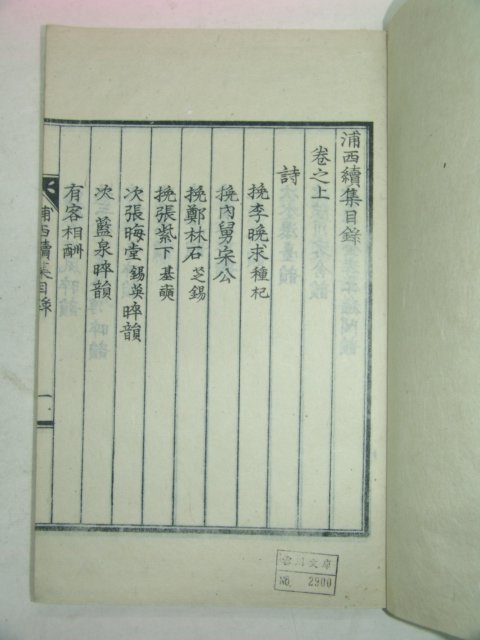 浦西續集目錄
卷之上
詩
挽李晚求種杞
挽內舅宋公
挽鄭林石芝錫
挽張紫下基奭
次張晦堂錫英晬韻
次藍泉晬韻
有客相酬
浦西續集目錄
一
文庫
No. 2900